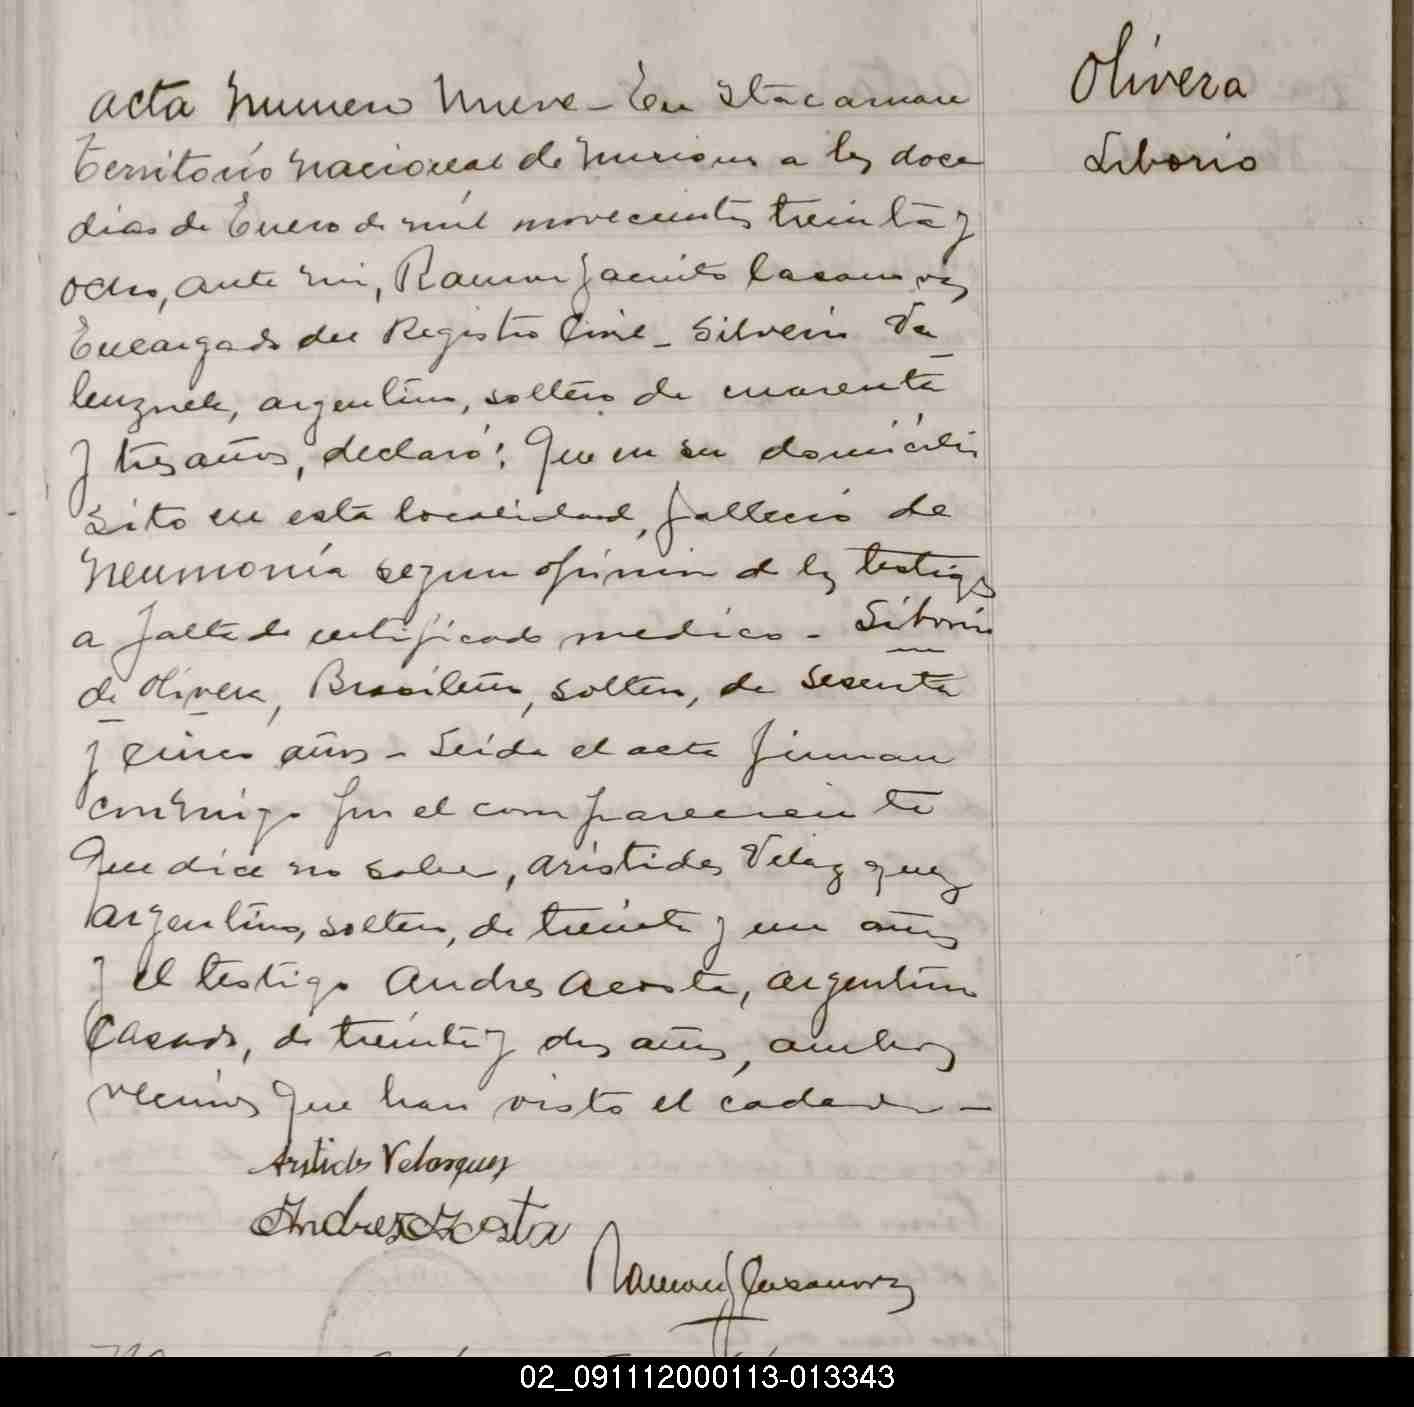 Acta Numero Nueve - En Itacaruare
Territorio Nacional de Misiones a los doce
dias de Enero de mil novecientos treinta y
ocho, ante mi, Ramon Jacinto Casanova
Encargado del Registro Civil - Silverio Va
lenzuela, argentino, soltero de cuarenta
y tres años, declaró: Que en su domicilio
sito en esta localidad, fallecio de
Neumonía segun opinion de los testigos
a falta de certificado medico - Liborio
de Olivera, Brasileño, soltero, de sesenta
y cinco años - Leida el acta firman
conmigo por el compareciente
Que dice no saber, Aristides Velazquez
argentino, soltero, de treinta y un años
y el testigo Andres Acosta, argentino
Casado, de treinta y dos años, ambos
vecinos que han visto el cadaver -
Aristides Velasquez
Andres Acosta
Ramon J Casanova
Olivera
Liborio
02_091112000113-013343